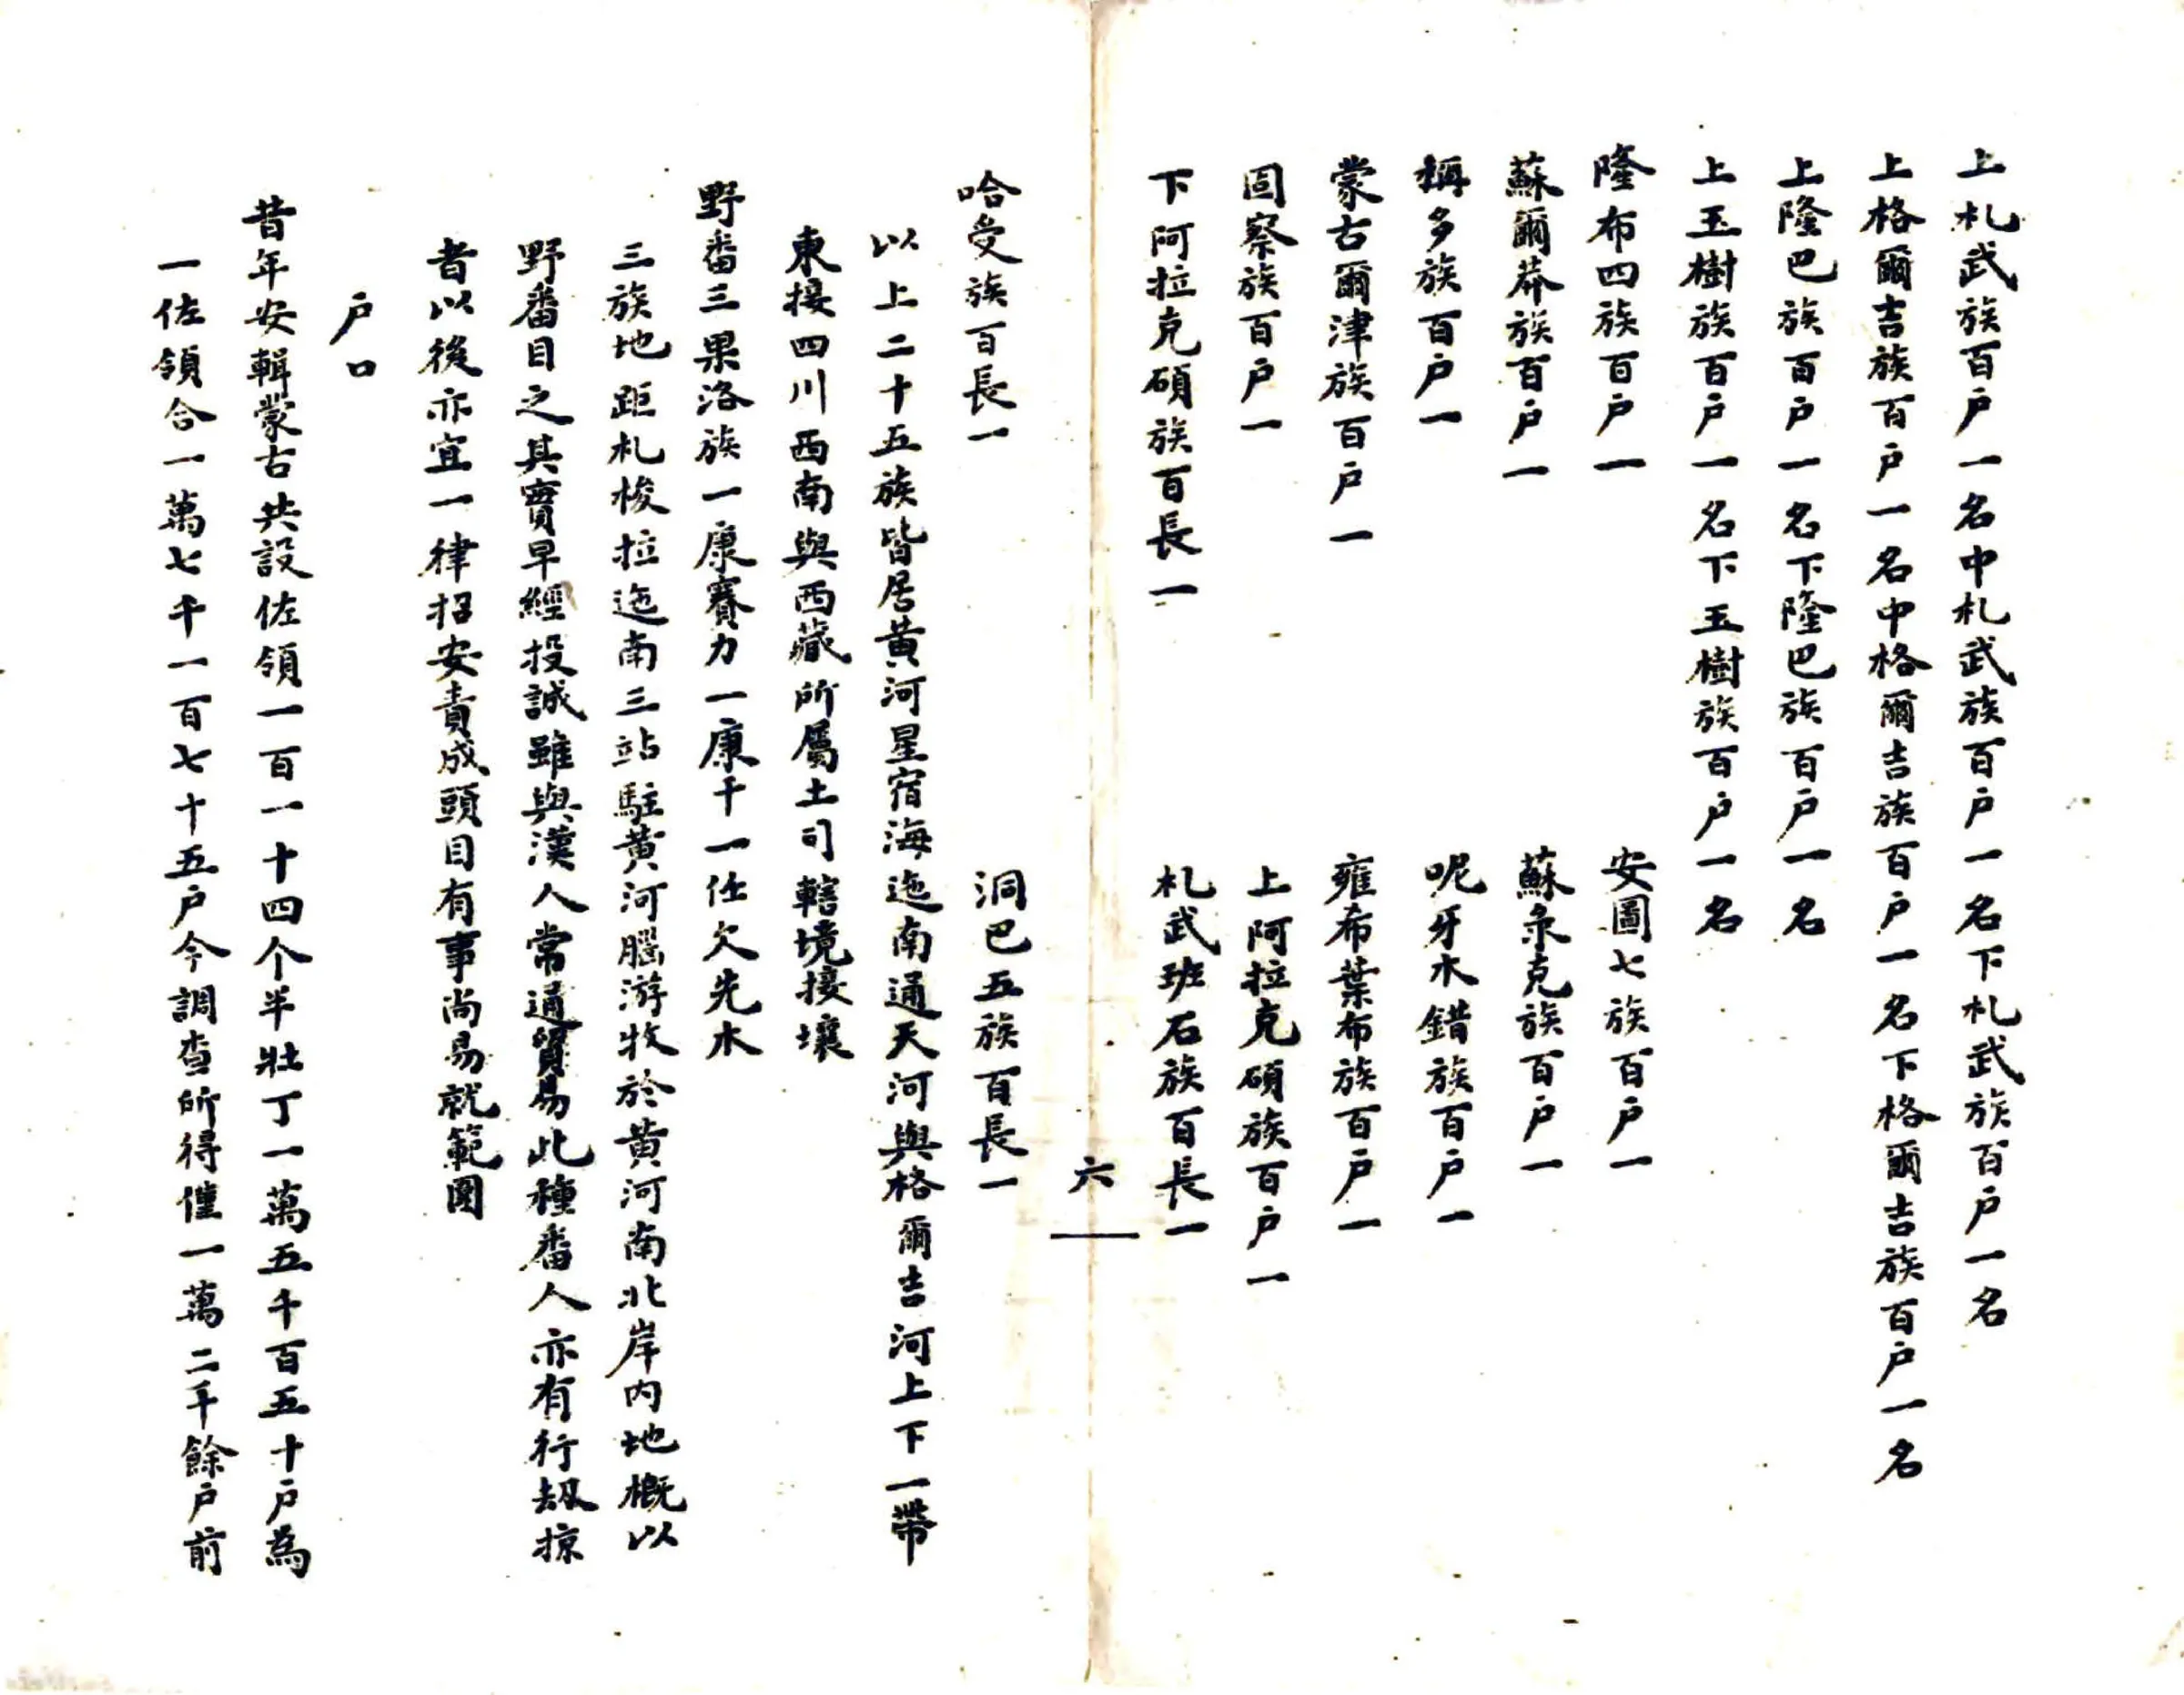 上札武族百户一名中札武族百户一名下札武族百户一名
上格爾吉族百户一名中格爾吉族百户一名下格爾吉族百户一名
上隆巴族百户一名下隆巴族百户一名
上玉樹族百户一名下玉樹族百户一名
隆布四族百户一　安圖七族百户一
蘇爾莽族百户一　蘇魚克族百户一
稱多族百户一　呢牙木錯族百户一
蒙古爾津族百户一　雍希葉布族百户一
固察族百户一　上阿拉克碩族百户一
下阿拉克碩族百長一　札武班石族百長一
六
哈受族百長一　洞巴五族百長一
以上二十五族皆居黄河星宿海迤南通天河與格爾吉河上下一帶
東接四川西南與西藏所屬土司轄境接壤
野番三果洛族一康賽力一康千一任欠先木
三族地距札梭拉迤南三站駐黄河腦游牧於黄河南北岸内地概以
野番目之其實早經投誠雖與漢人常通貿易此種番人亦有行刼掠
者以後亦宜一律招安責成頭目有事尚易就範圍
户口
昔年安輯蒙古共設佐領一百一十四个半壯丁一萬五千百五十户為
一佐領合一萬七千一百七十五户今調查所得僅一萬二千餘户前